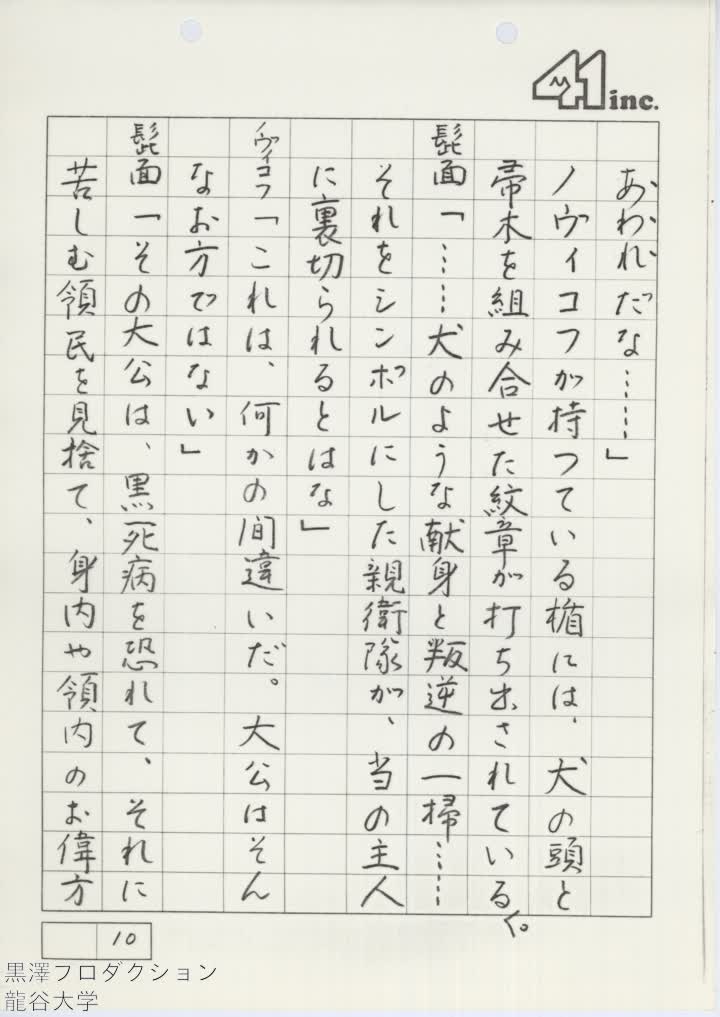 41 inc.
あわれだな……」
ノヴィコフが持つている楯には、犬の頭と
帚木を組み合せた紋章が打ち出されている。
髭面「……犬のような献身と叛逆の一掃……
それをシンボルにした親衛隊が、当の主人
に裏切られるとはな」
ノヴィコフ「これは、何かの間違いだ。大公はそん
なお方ではない」
髭面「その大公は、黒死病を恐れて、それに
苦しむ領民を見捨て、身内や領内のお偉方
10
黒澤プロダクション
龍谷大学